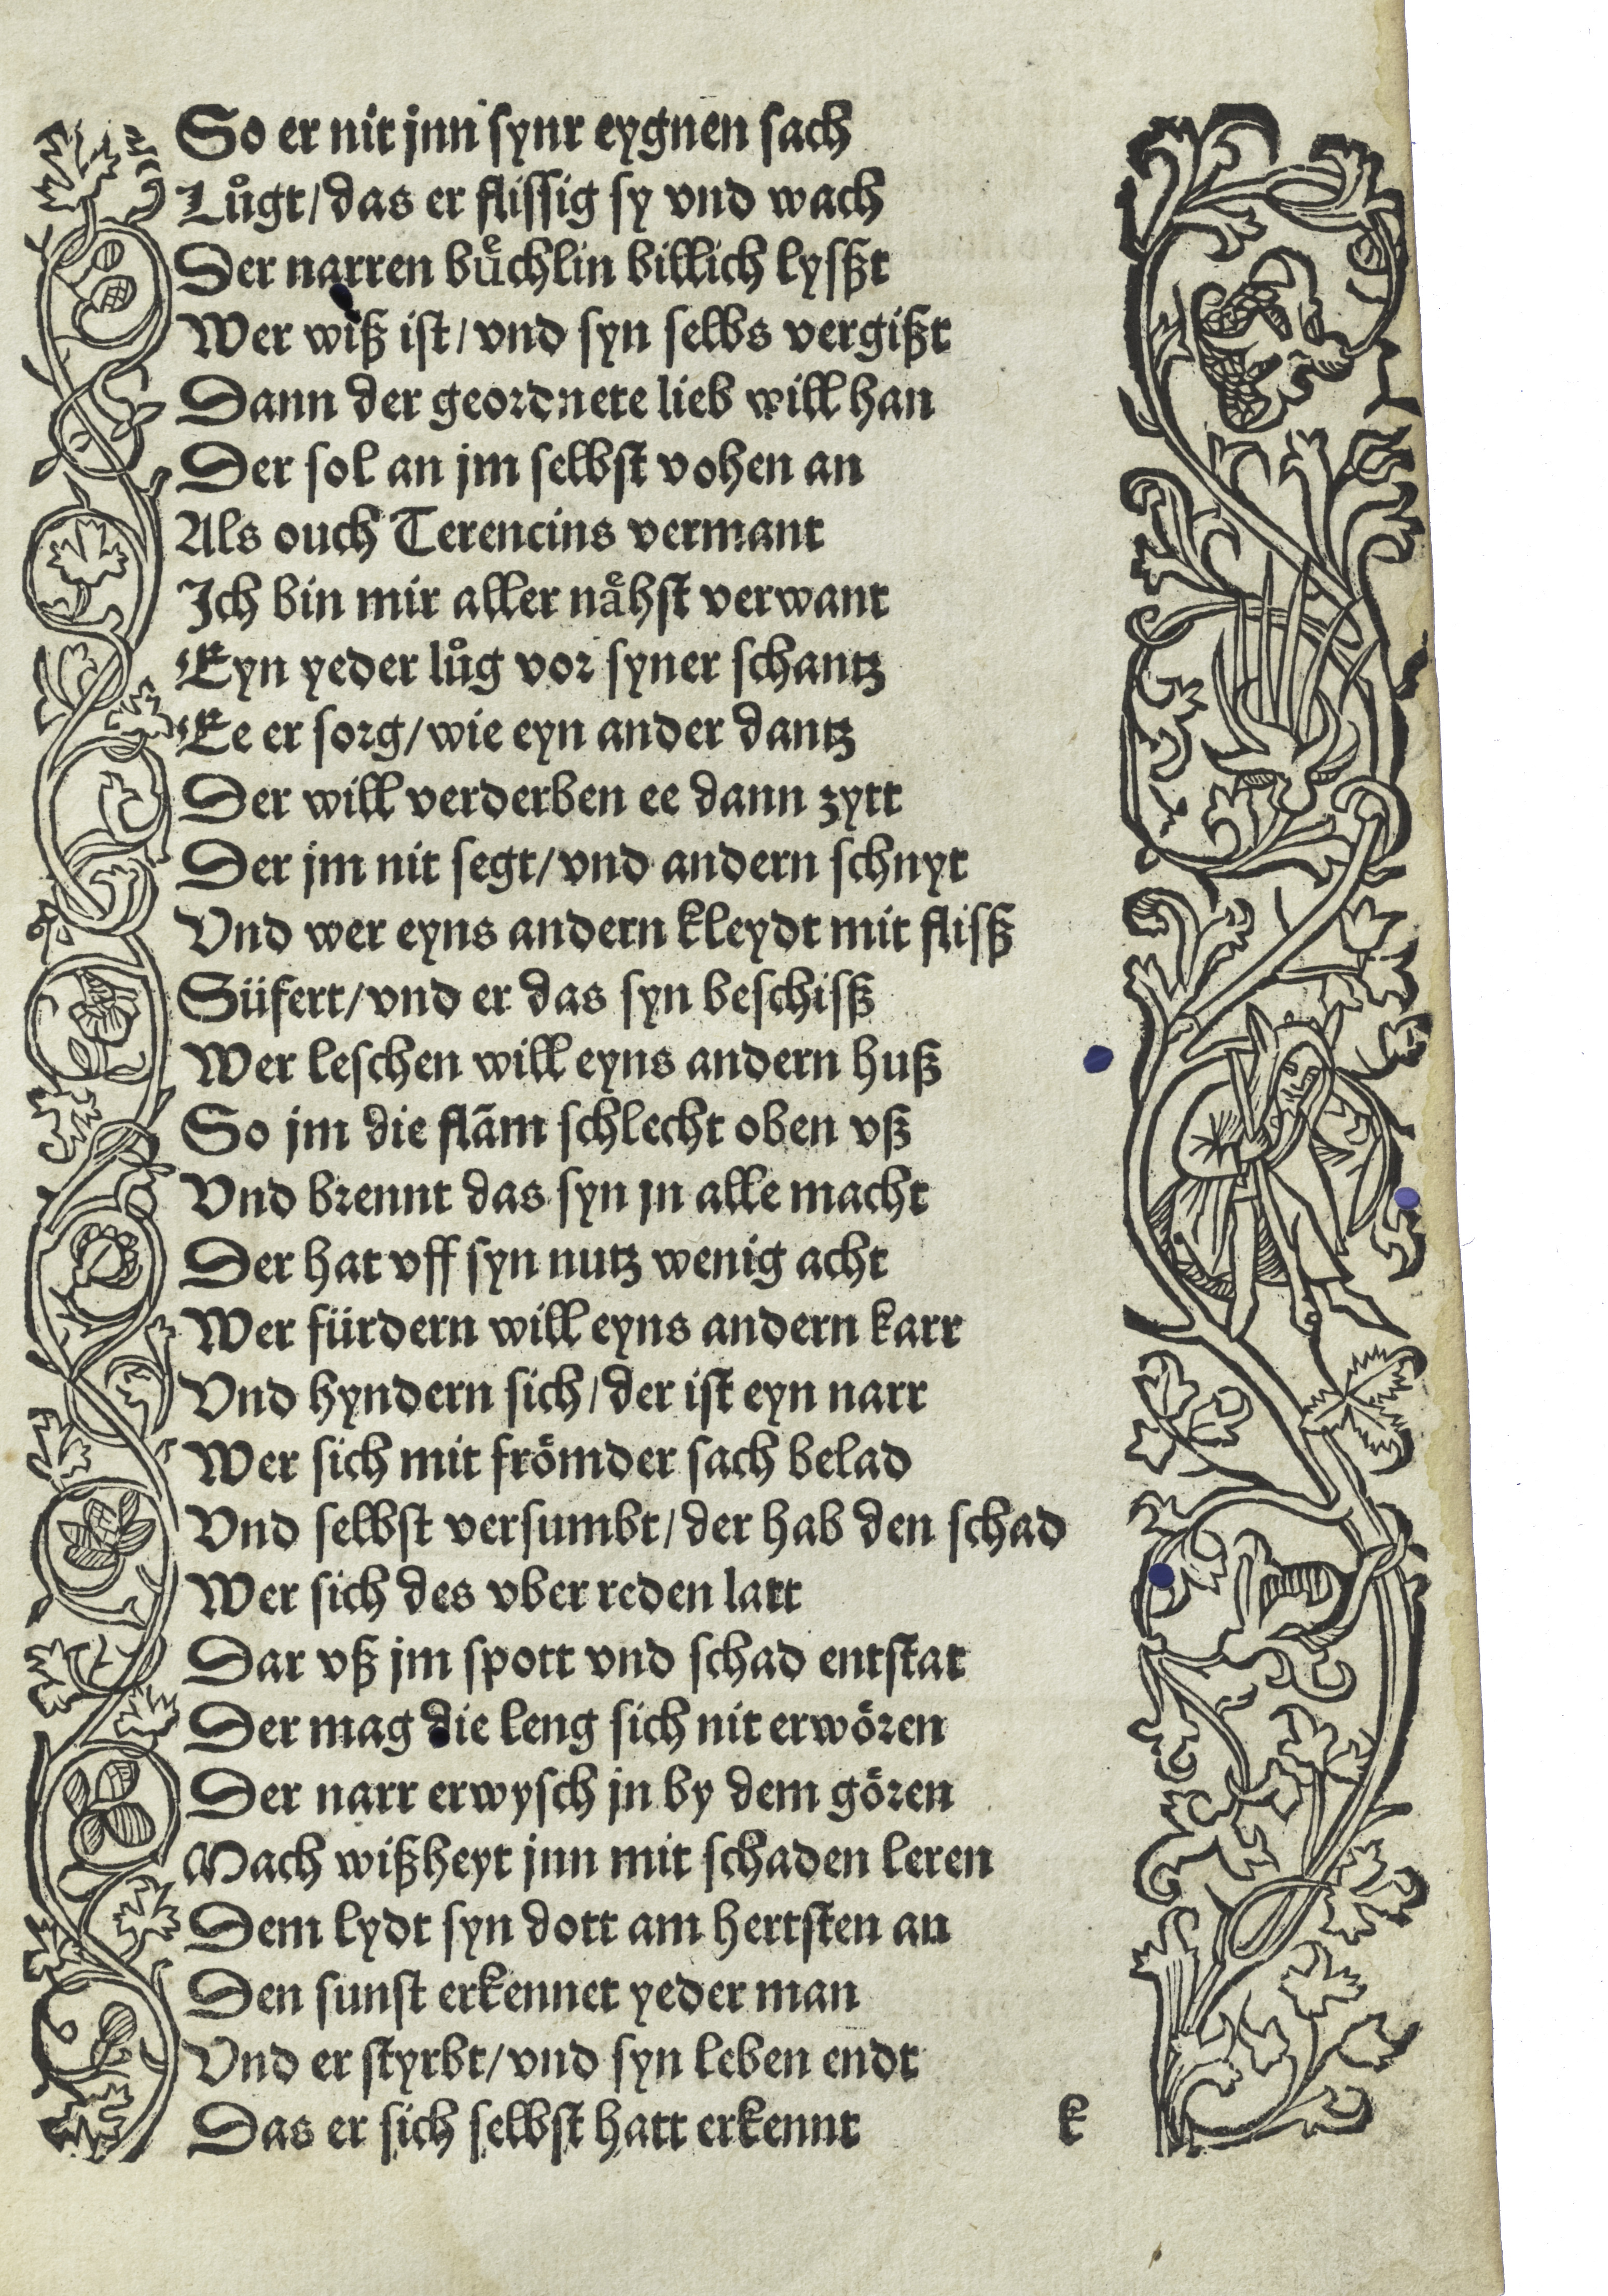 So er nit jnn synr eygnen sach
Lůgt/das er flissig sy vnd wach
Der narren bůͤchlin billich lysßt
Wer wiß ist/vnd syn selbs vergißt
Dann der geordnete lieb will han
Der sol an jm selbst vohen an
Als ouch Terencius vermant
Ich bin mir aller naͤhst verwant
Eyn yeder lůg vor syner schantz
Ee er sorg/wie eyn ander dantz
Der will verderben ee dann zytt
Der jm nit segt/vnd andern schnyt
Vnd wer eyns andern kleydt mit flisß
Süfert/vnd er das syn beschisß
Wer leschen will eyns andern huß
So jm die flãm schlecht oben vß
Vnd brennt das syn jn alle macht
Der hat vff syn nutz wenig acht
Wer fürdern will eyns andern karr
Vnd hyndern sich/der ist eyn narr
Wer sich mit frömder sach belad
Vnd selbst versumbt/der hab den schad
Wer sich des vber reden latt
Dar vß jm spott vnd schad entstat
Der mag die leng sich nit erwören
Der narr erwysch jn by dem gören
Mach wißheyt jnn mit schaden leren
Dem lydt syn dott am hertsten an
Den sunst erkennet yeder man
Vnd er styrbt/vnd syn leben endt
Das er sich selbst hatt erkennt
k